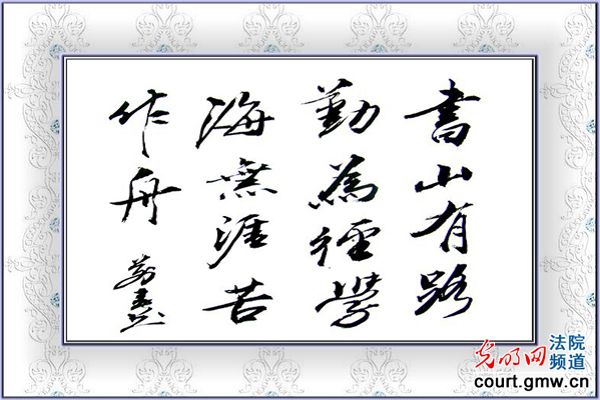 書山有路
勤為徑學
海無涯苦
作舟
光明网
法院
频道
court.gmw.cn